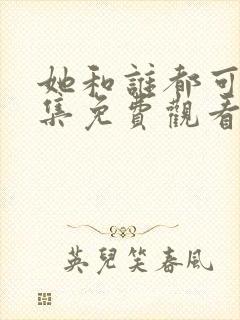 她和誰都可
集免費觀看
英兒笑春風